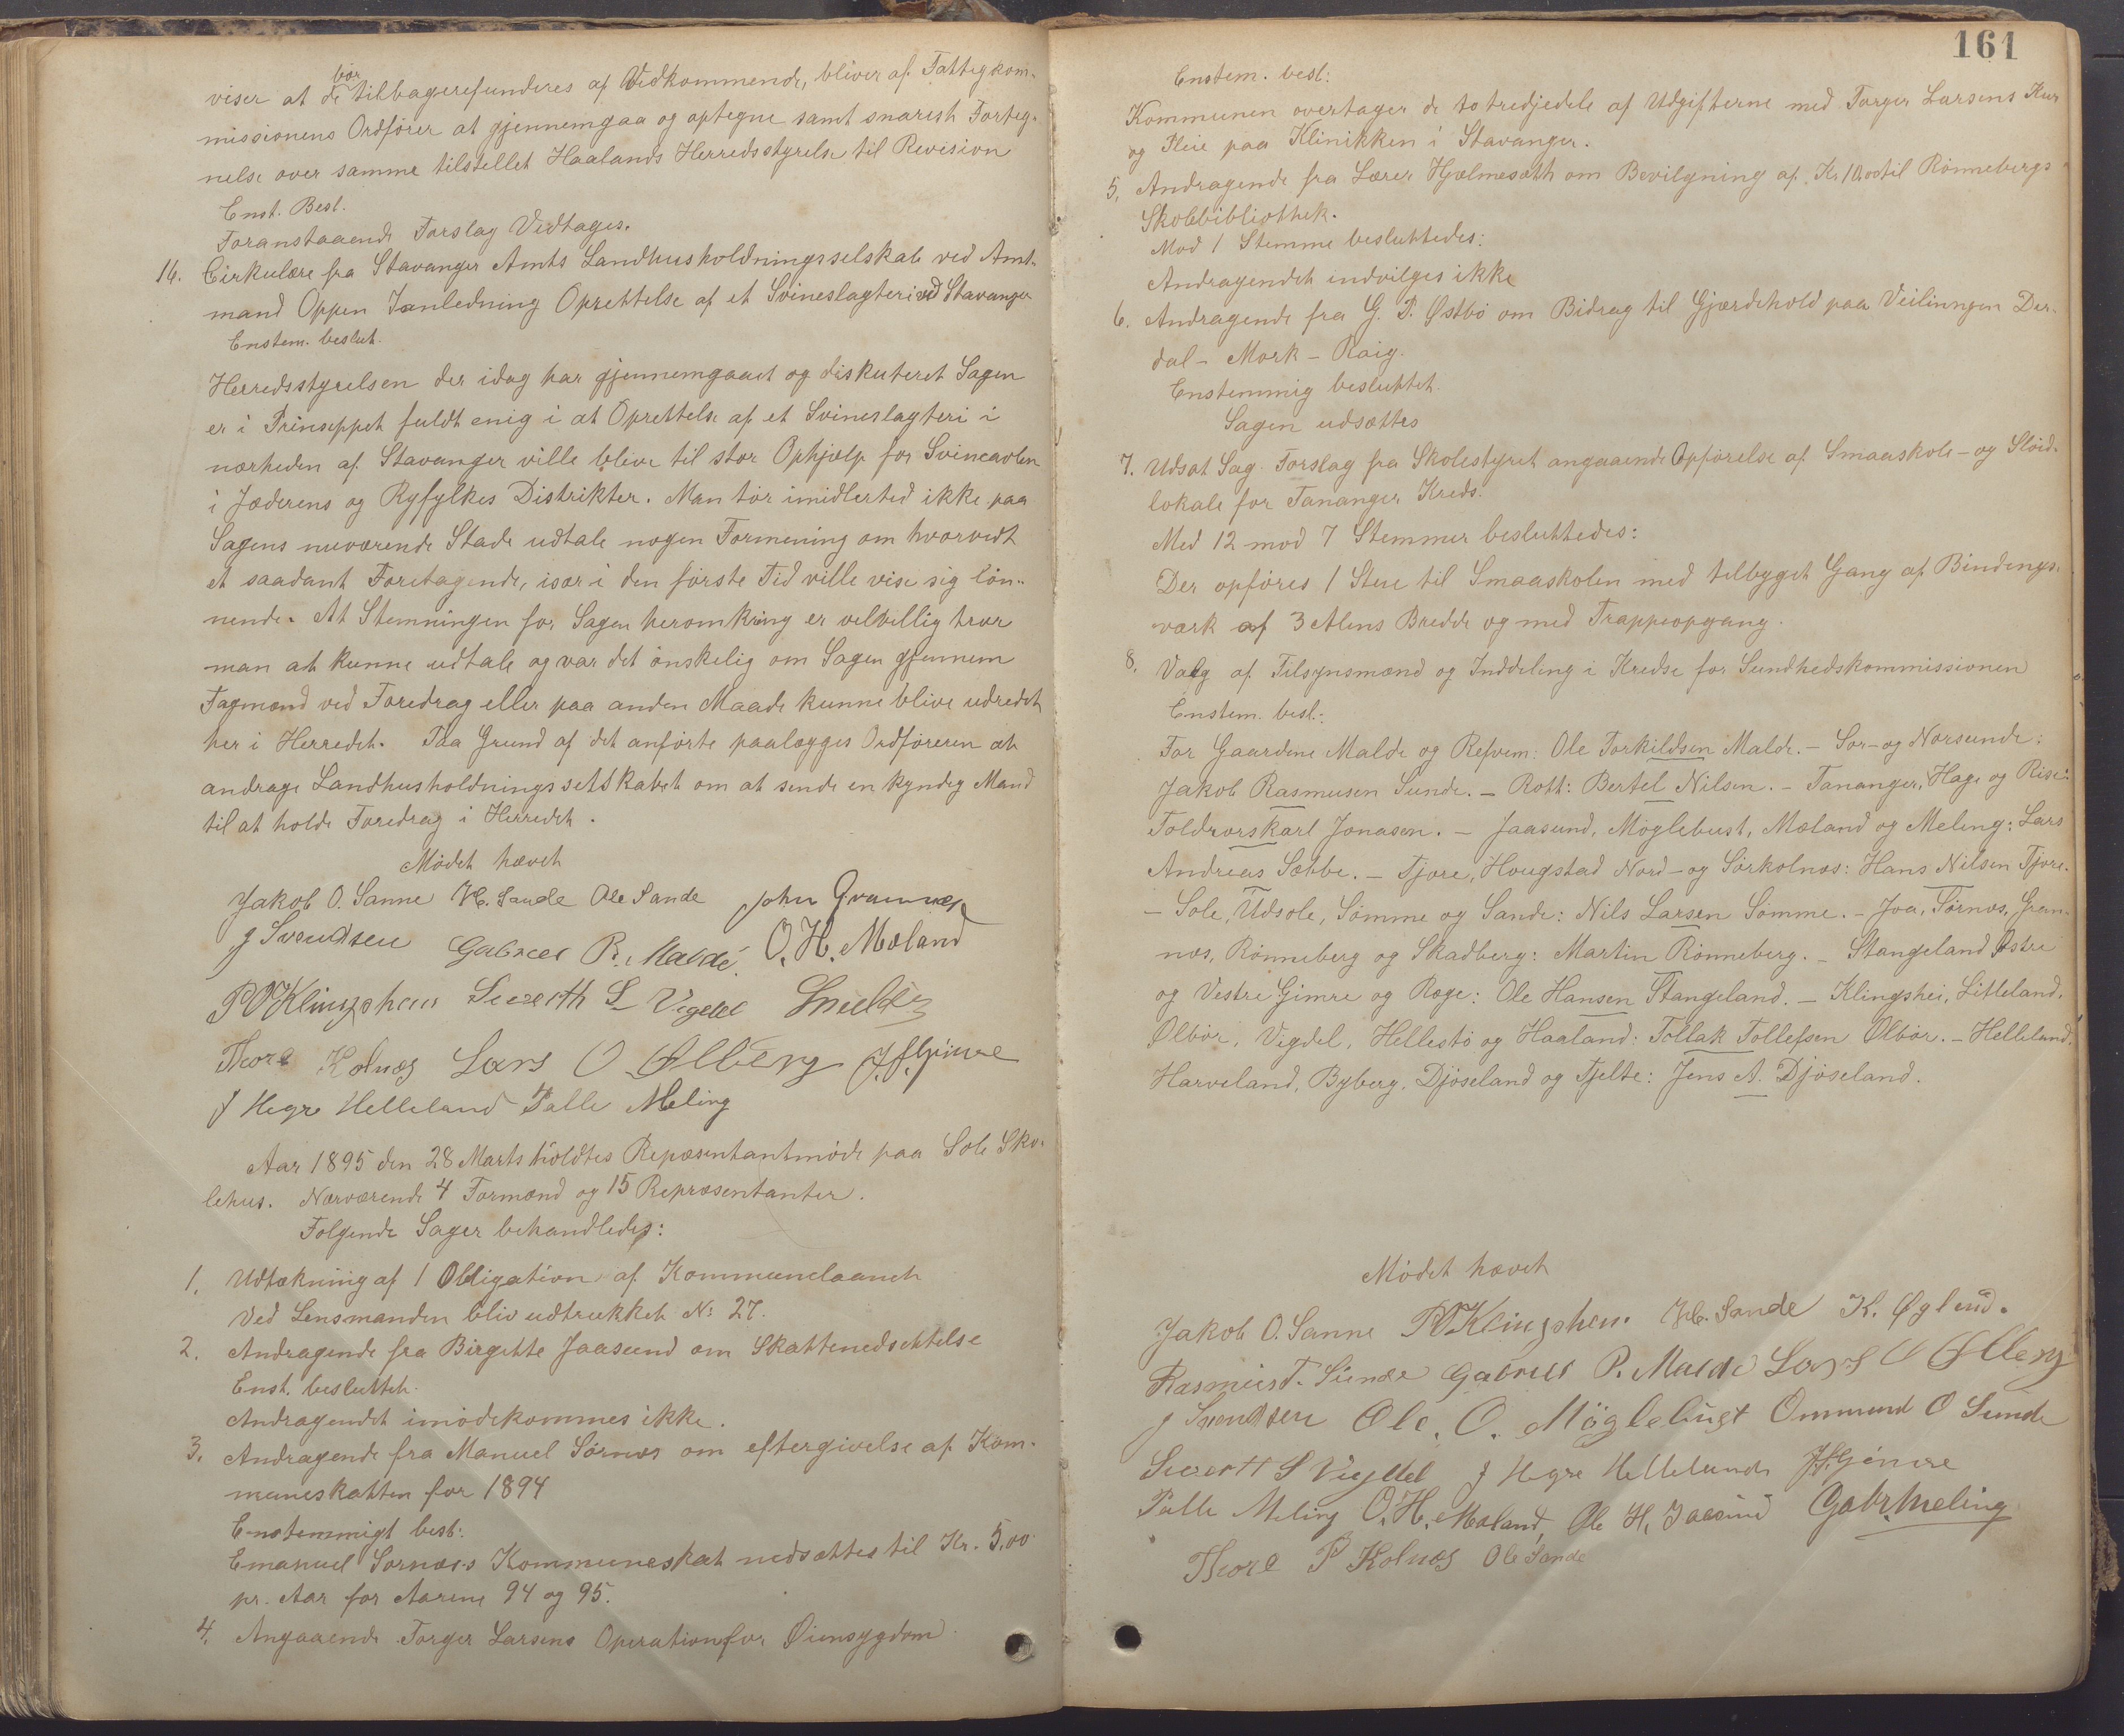 viser at de bør tilbagerefunderes af Vedkommende, bliver af Fattigkom-
missionens Ordfører at gjennemgaa og optegne samt snarest Forteg-
nelse over samme tilstillet Haalands Herredsstyrelse til Revision
Enst. Besl.
Foranstaaende Forslag Vedtages.
16. Cirkulære fra Stavanger Amts Landhusholdningsselskab ved Amt-
mand Oppen Ianledning Oprettelse af et Svineslagteri ved Stavanger
Enstem. beslut.
Herredsstyrelsen der idag har gjennemgaaet og diskuteret Sagen
er i Prinseppet fuldt enig i at Oprettelse af et Svineslagteri i
nærheden af Stavanger ville blive til stor Ophjælp for Svineavlen
i Jæderens og Ryfylkes Distrikter. Man tør imidlerted ikke paa
Sagens nuværende Stade udtale nogen Formening om hvorvidt
et saadant Foretagende, især i den første Tid ville vise sig løn-
nende. At Stemningen for Sagen heromkring er velvillig tror
man at kunne udtale og var det ønskelig om Sagen gjennem
Fagmænd ved Foredrag eller paa anden Maade kunne blive udredet
her i Herredet. Paa Grund af det anførte paalægges Ordføreren at
andrage Landhusholdningsselskabet om at sende en kyndig Mand
til at holde Foredrag i Herredet.
Mødet hævet
Jakob O. Sanne H. Sande Ole Sande John Grannes
J Svendsen Gabriel P. Malde. O. H. Mæland
P O Klingshein Sivert S Vigdel
Thore Kolnes Lars O Ølberg J. Gimre
J Hegre Helleland Palle Meling
Aar 1895 den 28 Marts holdtes Repæsentantmøde paa Sole Sko-
lehus. Nærværende 4 Formænd og 15 Repræsentanter.
Følgende Sager behandledes:
1. Udtrækning af 1 Obligation af Kommunelaanet
Ved Lensmanden blev udtrukket No 27.
2. Andragende fra Birgitte Jaasund om Skattenedsettelse
Enst. besluttet.
Andragendet imødekommes ikke.
3. Andragende fra Manuel Sørnæs om eftergivelse af Kom-
muneskatten for 1894
Enstemmigt besl:
Emanuel Sørnæs's Kommuneskat nedsættes til Kr. 5,00
pr. Aar for Aarene 94 og 95.
4. Angaaende Torger Larsens Operation for Øiensygdom
161
Enstem. besl:
Kommunen overtager de to tredjedele af Udgifterne med Torger Larsens Kur
og Pleie paa Klinikken i Stavanger.
5. Andragende fra Lærer Hjelmesæth om Bevilgning af Kr 10.00 til Rønnebergs
Skolebibliothek.
Mod 1 Stemme besluttedes:
Andragendet indvilges ikke
6. Andragende fra G. P. Østbø om Bidrag til Gjærdehold paa Veilinngen Der-
dal - Mork - Raig.
Enstemmig besluttet.
Sagen udsættes
7. Udsat Sag. Forslag fra Skolestyret angaaende Opførelse af Smaaskole- og Sløid-
lokale for Tananger Kreds.
Med 12 mod 7 Stemmer besluttedes:
Der opføres 1 Stue til Smaaskolen med tilbygget Gang af Bindings-
værk af 3 Alens Bredde og med Trappeopgang.
8. Valg af Tilsynsmænd og Inddeling i Kredse for Sundhedskommissionen
Enstem. besl:
For Gaardene Malde og Refsem: Ole Torkildsen Malde. - Sør- og Norsunde:
Jakob Rasmusen Sunde. - Rott: Bertel Nilsen. - Tananger, Hage og Risa:
Toldrorskarl Jonasen. - Jaasund, Møglebust, Mæland og Meling: Lars
Andreas Sæbbe. - Tjore, Hougstad Nord- og Sørkolnes: Hans Nilsen Tjore.
- Sole, Udsole, Sømme og Sande: Nils Larsen Sømme. - Joa, Sørnæs, Gran-
næs, Rønneberg og Skadberg: Martin Rønneberg. - Stangeland Østre
og Vestre Gimre og Røge: Ole Hansen Stangeland. - Klingshei, Litleland,
Ølbør, Vigdel, Hellestø og Haaland: Tollak Tollefsen Ølbør. - Helleland,
Harveland, Byberg, Djøseland og Tjelte: Jens A. Djøseland.
Mødet hævet
Jakob O. Sanne P O Klingshein. H. Sande K. Øglend.
Rasmus T. Sunde Gabriel P. Malde Lars O Ølberg
J Svendsen Ole. O. Møglebust Ommund O Sunde
Sivert S Vigdel J Hegre Helleland J. Gimre
Palle Meling O. H. Mæland, Ole H. Jaasund Gabr. Meling
Thore P Kolnes Ole Sande